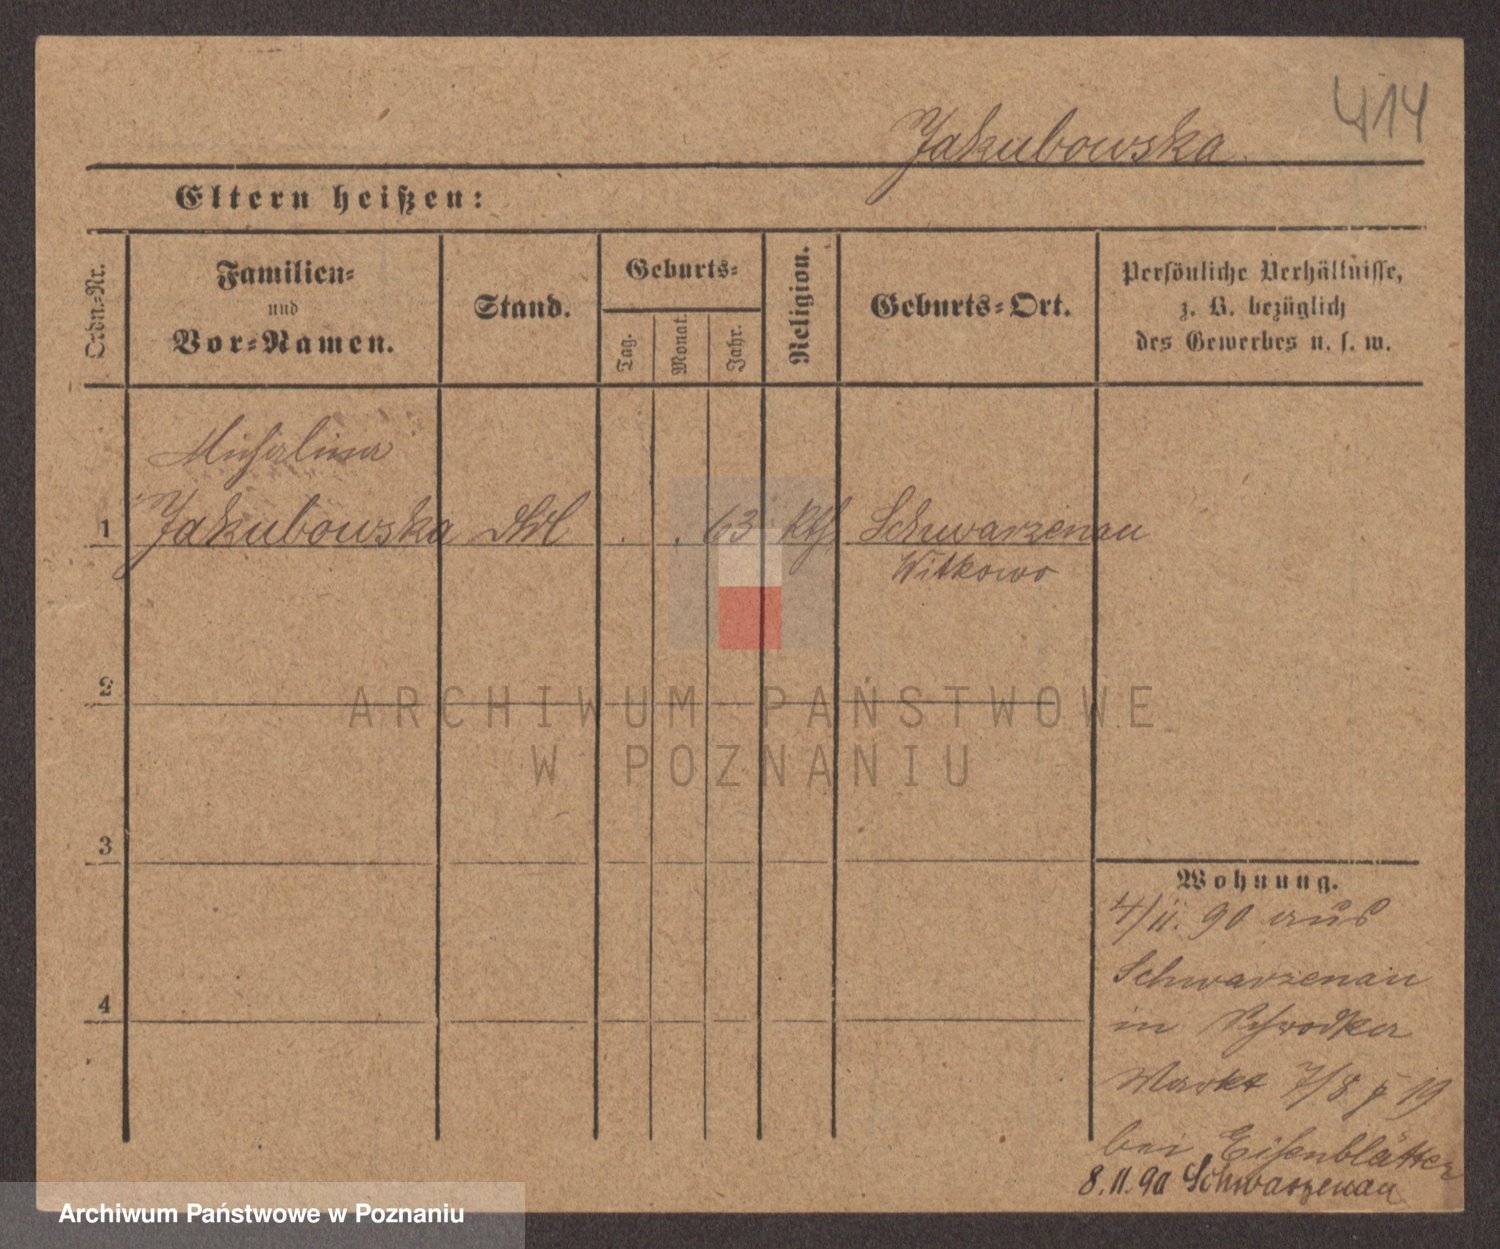 414
Jakubowska
Eltern heißen:
Ordn.-Nr.
Familien-
und
Vor-Namen.
Stand.
Geburts-
Tag.
Monat.
Jahr.
Religion.
Geburts-Ort.
Persönliche Verhältnisse,
z. B. bezüglich
des Gewerbes u. s. w.
Michalina
1 Jakubowska . . 63 kth Schwarzenau
Witkowo
2
3
4
Wohnung.
4/11. 90 aus
Schwarzenau
in Schrodka
Markt 7/8 19
bei Eisenblätter
8.11.90 Schwarzenau
ARCHIWUM PAŃSTWOWE
W POZNANIU
Archiwum Państwowe w Poznaniu